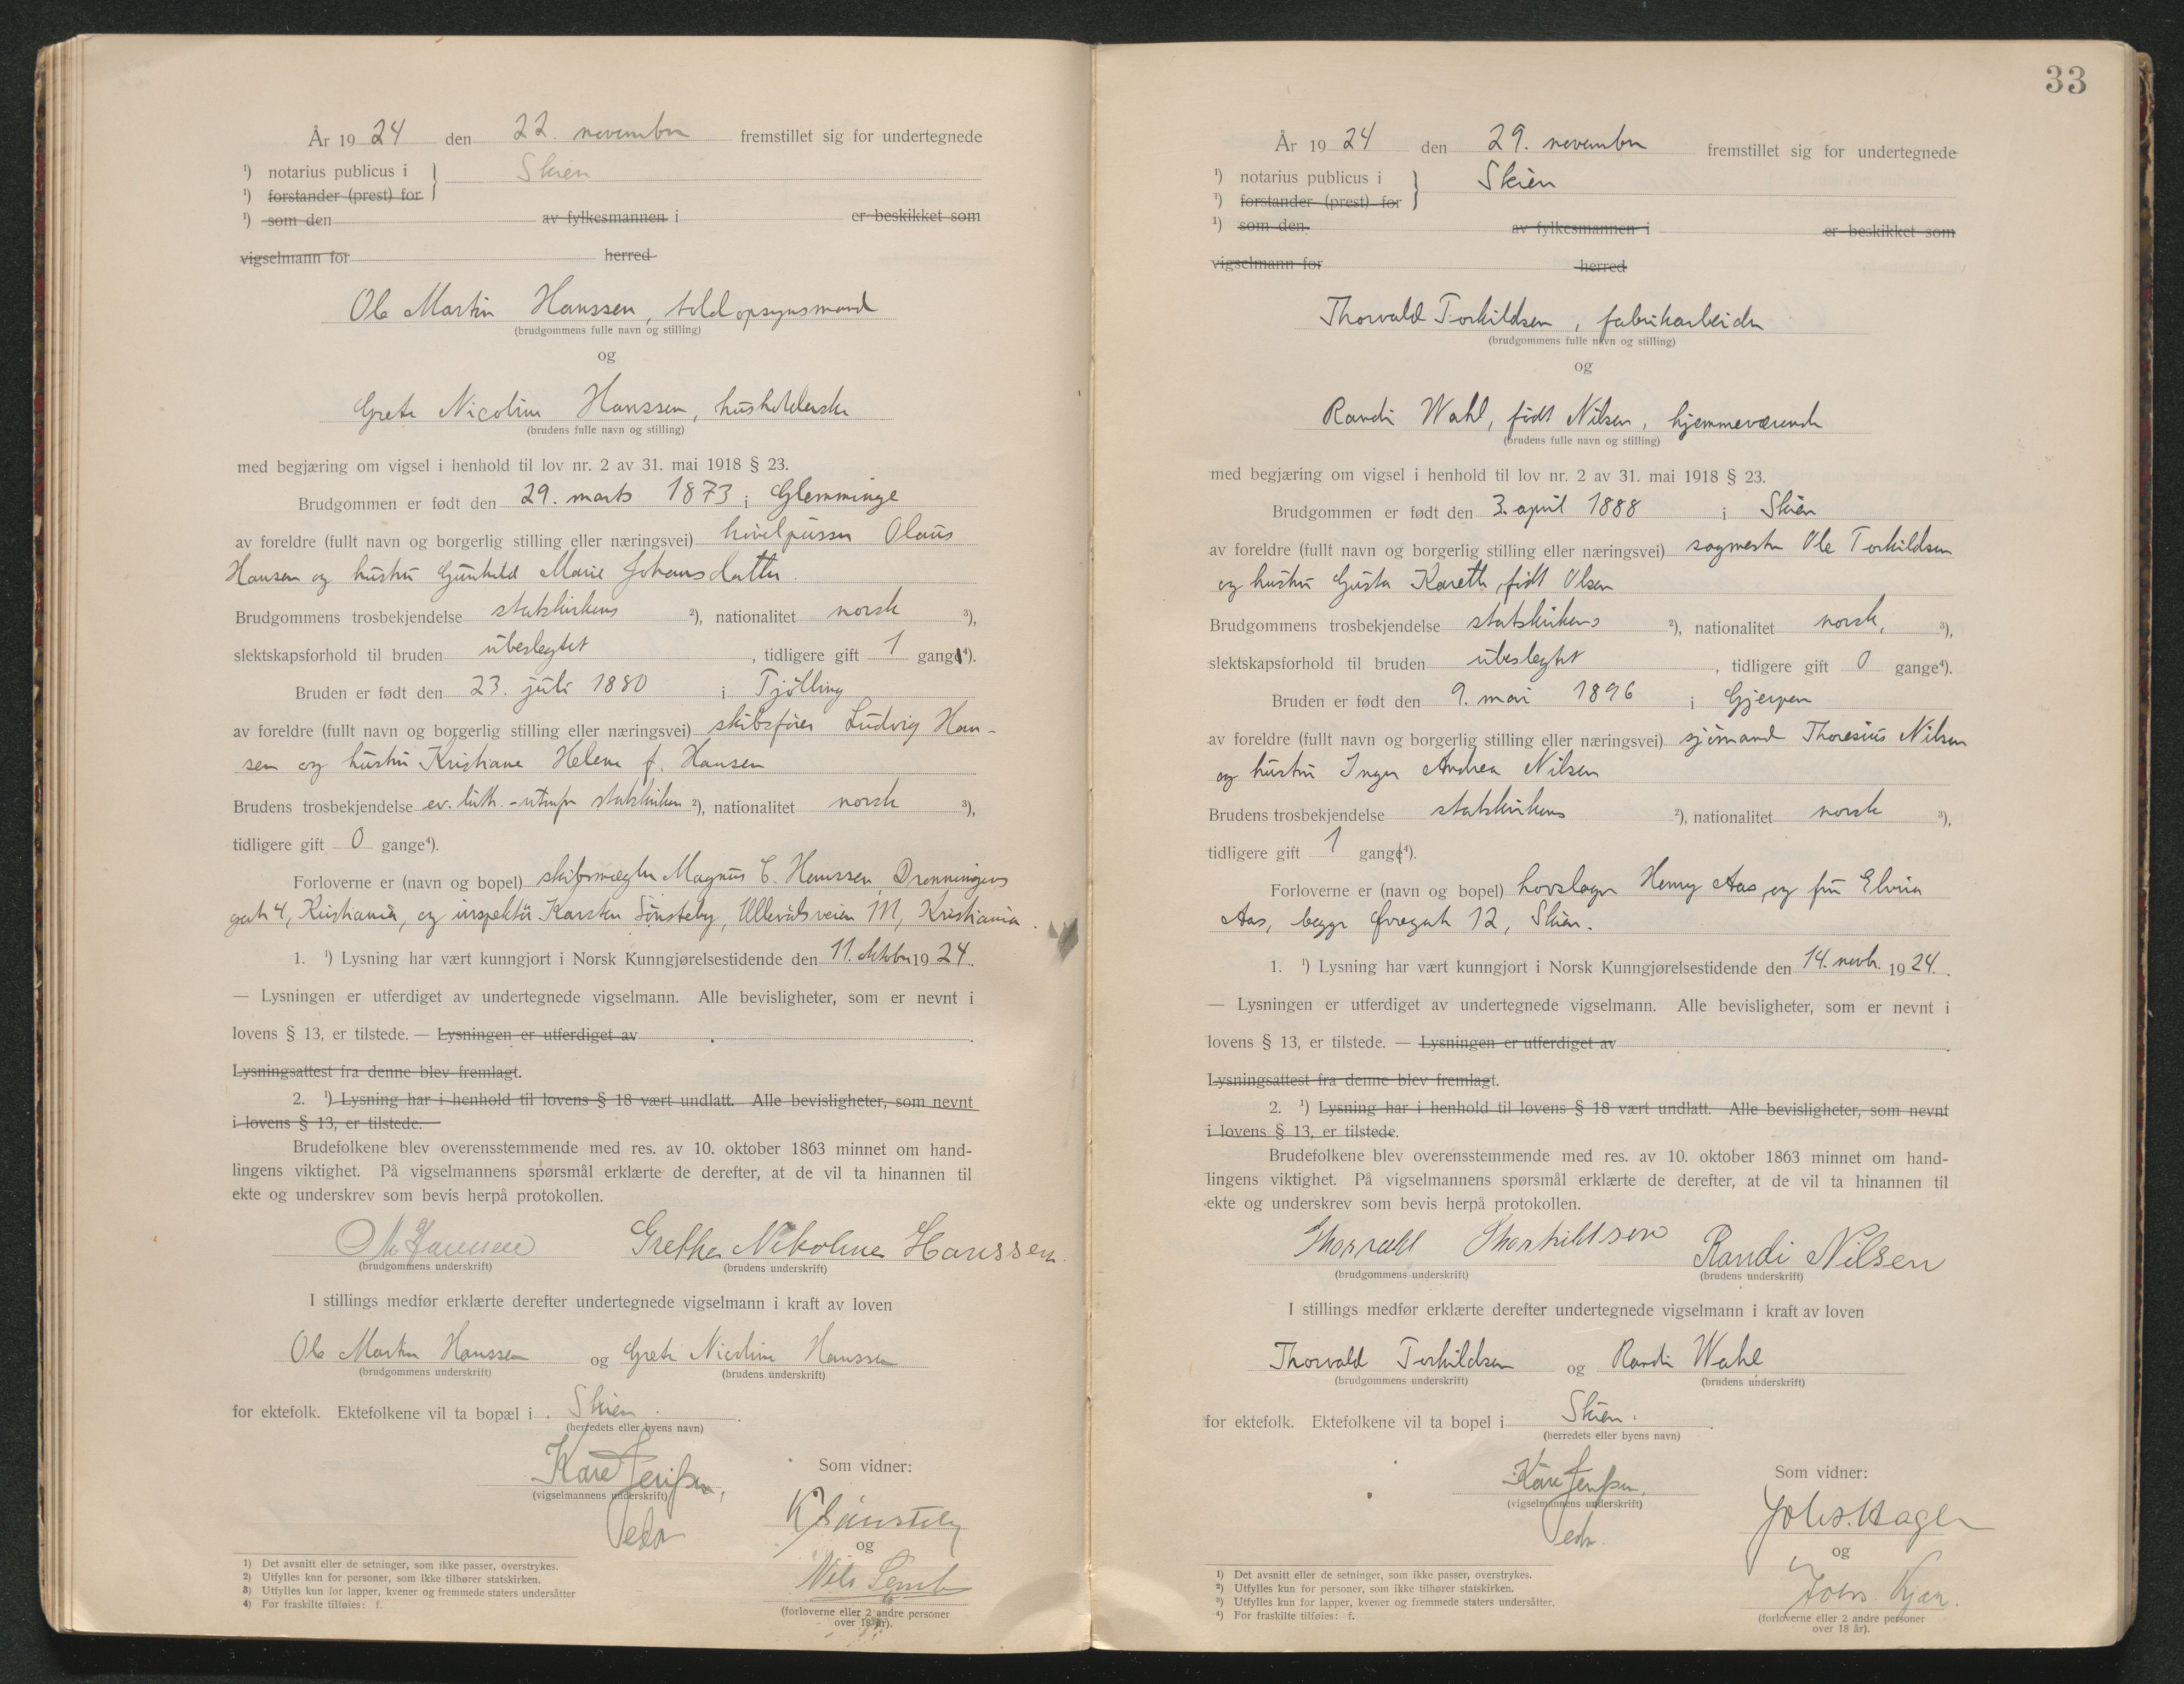 År 1924 den 22. november fremstillet sig for undertegnede
¹) notarius publicus i } Skien
¹) forstander (prest) for
¹) som den av fylkesmannen i er beskikket som
vigselmann for herred
Ole Martin Hanssen, toldopsynsmand
(brudgommens fulle navn og stilling)
og
Grete Nicoline Hanssen, husholderske
(brudens fulle navn og stilling)
med begjæring om vigsel i henhold til lov nr. 2 av 31. mai 1918 § 23.
Brudgommen er født den 29. marts 1873 i Glemminge
av foreldre (fullt navn og borgerlig stilling eller næringsvei) Olaus
Hansen og hustru Gunhild Marie Johansdatter.
Brudgommens trosbekjendelse statskirkens ²), nationalitet norsk ³),
slektskapsforhold til bruden ubeslegtet, tidligere gift 1 gang ⁴).
Bruden er født den 23. juli 1880 i Tjølling
av foreldre (fullt navn og borgerlig stilling eller næringsvei) skibsfører Ludvig Han-
sen og hustru Kristiane Helene f. Hansen
Brudens trosbekjendelse ev. luth. - utenfor statskirken ²), nationalitet norsk ³),
tidligere gift 0 gange⁴).
Forloverne er (navn og bopel) skibsmægler Magnus C. Hanssen, Dronningens
gate 4, Kristiania, og inspektør Karsten Sønsteby, Ullevålsveien 111, Kristiania.
1. ¹) Lysning har vært kunngjort i Norsk Kunngjørelsestidende den 11. oktober 1924.
— Lysningen er utferdiget av undertegnede vigselmann. Alle bevisligheter, som er nevnt i
lovens § 13, er tilstede. — Lysningen er utferdiget av
Lysningsattest fra denne blev fremlagt.
2. ¹) Lysning har i henhold til lovens § 18 vært undlatt. Alle bevisligheter, som nevnt
i lovens § 13, er tilstede.
Brudefolkene blev overensstemmende med res. av 10. oktober 1863 minnet om hand-
lingens viktighet. På vigselmannens spørsmål erklærte de derefter, at de vil ta hinannen til
ekte og underskrev som bevis herpå protokollen.
O M Hanssen Grethe Nikoline Hanssen.
(brudgommens underskrift) (brudens underskrift)
I stillings medfør erklærte derefter undertegnede vigselmann i kraft av loven
Ole Martin Hanssen og Grete Nicoline Hanssen
(brudgommens underskrift) (brudens underskrift)
for ektefolk. Ektefolkene vil ta bopæl i Skien.
(herredets eller byens navn)
Kåre Jenssen,
(vigselmannens underskrift)
Som vidner:
K Sønsteby
og
Nils
(forloverne eller 2 andre personer
over 18 år).
1) Det avsnitt eller de setninger, som ikke passer, overstrykes.
2) Utfylles kun for personer, som ikke tilhører statskirken.
3) Utfylles kun for lapper, kvener og fremmede staters undersåtter
4) For fraskilte tilføies: f.
33
År 1924 den 29. november fremstillet sig for undertegnede
¹) notarius publicus i } Skien
¹) forstander (prest) for
¹) som den av fylkesmannen i er beskikket som
vigselmann for herred
Thorvald Torkildsen, fabrikarbeider
(brudgommens fulle navn og stilling)
og
Randi Wahl, født Nilsen, hjemmeværende
(brudens fulle navn og stilling)
med begjæring om vigsel i henhold til lov nr. 2 av 31. mai 1918 § 23.
Brudgommen er født den 3. april 1888 i Skien
av foreldre (fullt navn og borgerlig stilling eller næringsvei) sagmester Ole Torkildsen
og hustru Gusta Kareth, født Olsen
Brudgommens trosbekjendelse statskirkens ²), nationalitet norsk, ³),
slektskapsforhold til bruden ubeslegtet, tidligere gift 0 gange⁴).
Bruden er født den 9. mai 1896 i Gjerpen
av foreldre (fullt navn og borgerlig stilling eller næringsvei) sjømand Thoresius Nilsen
og hustru Inger Andrea Nilsen
Brudens trosbekjendelse statskirkens ²), nationalitet norsk ³),
tidligere gift 1 gang ⁴).
Forloverne er (navn og bopel) hovslager Henry Aas og fru Elvira
Aas, begge Øvregate 12, Skien.
1. ¹) Lysning har vært kunngjort i Norsk Kunngjørelsestidende den 14. novbr. 1924.
— Lysningen er utferdiget av undertegnede vigselmann. Alle bevisligheter, som er nevnt i
lovens § 13, er tilstede. — Lysningen er utferdiget av
Lysningsattest fra denne blev fremlagt.
2. ¹) Lysning har i henhold til lovens § 18 vært undlatt. Alle bevisligheter, som nevnt
i lovens § 13, er tilstede.
Brudefolkene blev overensstemmende med res. av 10. oktober 1863 minnet om hand-
lingens viktighet. På vigselmannens spørsmål erklærte de derefter, at de vil ta hinannen til
ekte og underskrev som bevis herpå protokollen.
Thorvald Thorkildsen Randi Nilsen
(brudgommens underskrift) (brudens underskrift)
I stillings medfør erklærte derefter undertegnede vigselmann i kraft av loven
Thorvald Torkildsen og Randi Wahl
(brudgommens underskrift) (brudens underskrift)
for ektefolk. Ektefolkene vil ta bopel i Skien.
(herredets eller byens navn)
Kåre Jenssen.
(vigselmannens underskrift)
Som vidner:
Johs. Hagen
og
Johs. Kjær.
(forloverne eller 2 andre personer
over 18 år).
¹) Det avsnitt eller de setninger, som ikke passer, overstrykes.
²) Utfylles kun for personer, som ikke tilhører statskirken.
³) Utfylles kun for lapper, kvener og fremmede staters undersåtter.
⁴) For fraskilte tilføies: f.